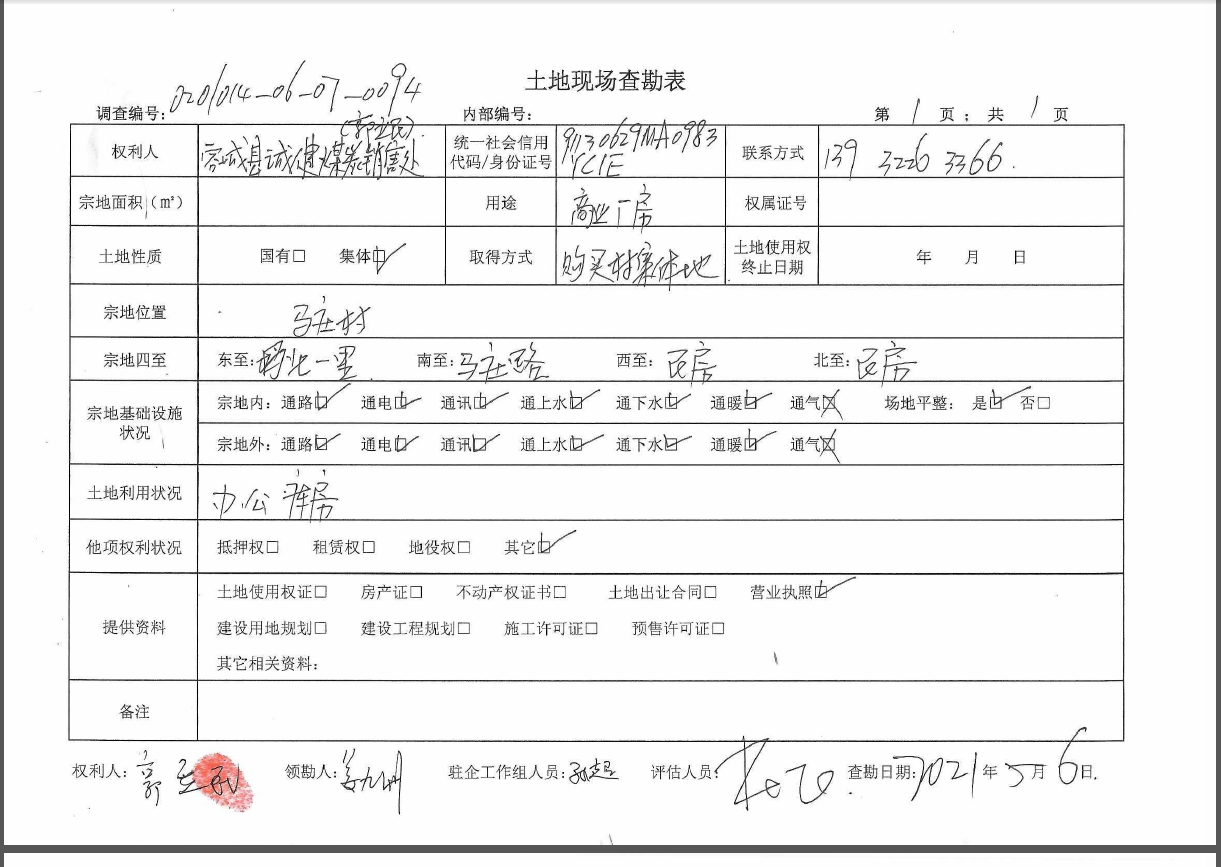 土地现场查勘表
调查编号：020/014-06-07-0094 内部编号： 第 1 页；共 1 页
权利人 容城县诚健煤炭销售处（郭立民） 统一社会信用代码/身份证号 91130629MA0983YC1E 联系方式 139 3226 3366.
宗地面积（㎡） 用途 商业厂房 权属证号
土地性质 国有□ 集体☑ 取得方式 购买村集体地 土地使用权终止日期 年 月 日
宗地位置 马庄村
宗地四至 东至： 北一里 南至：马庄路 西至：民房 北至：民房
宗地基础设施状况 宗地内：通路☑ 通电☑ 通讯☑ 通上水☑ 通下水☑ 通暖☑ 通气☒ 场地平整：是☑ 否□
宗地外：通路☑ 通电☑ 通讯☑ 通上水☑ 通下水☑ 通暖☑ 通气☒
土地利用状况 办公 库房
他项权利状况 抵押权□ 租赁权□ 地役权□ 其它☑
提供资料 土地使用权证□ 房产证□ 不动产权证书□ 土地出让合同□ 营业执照☑
建设用地规划□ 建设工程规划□ 施工许可证□ 预售许可证□
其它相关资料：
备注
权利人：郭立民 领勘人：姜九洲 驻企工作组人员： 评估人员： 查勘日期：2021年5月6日.